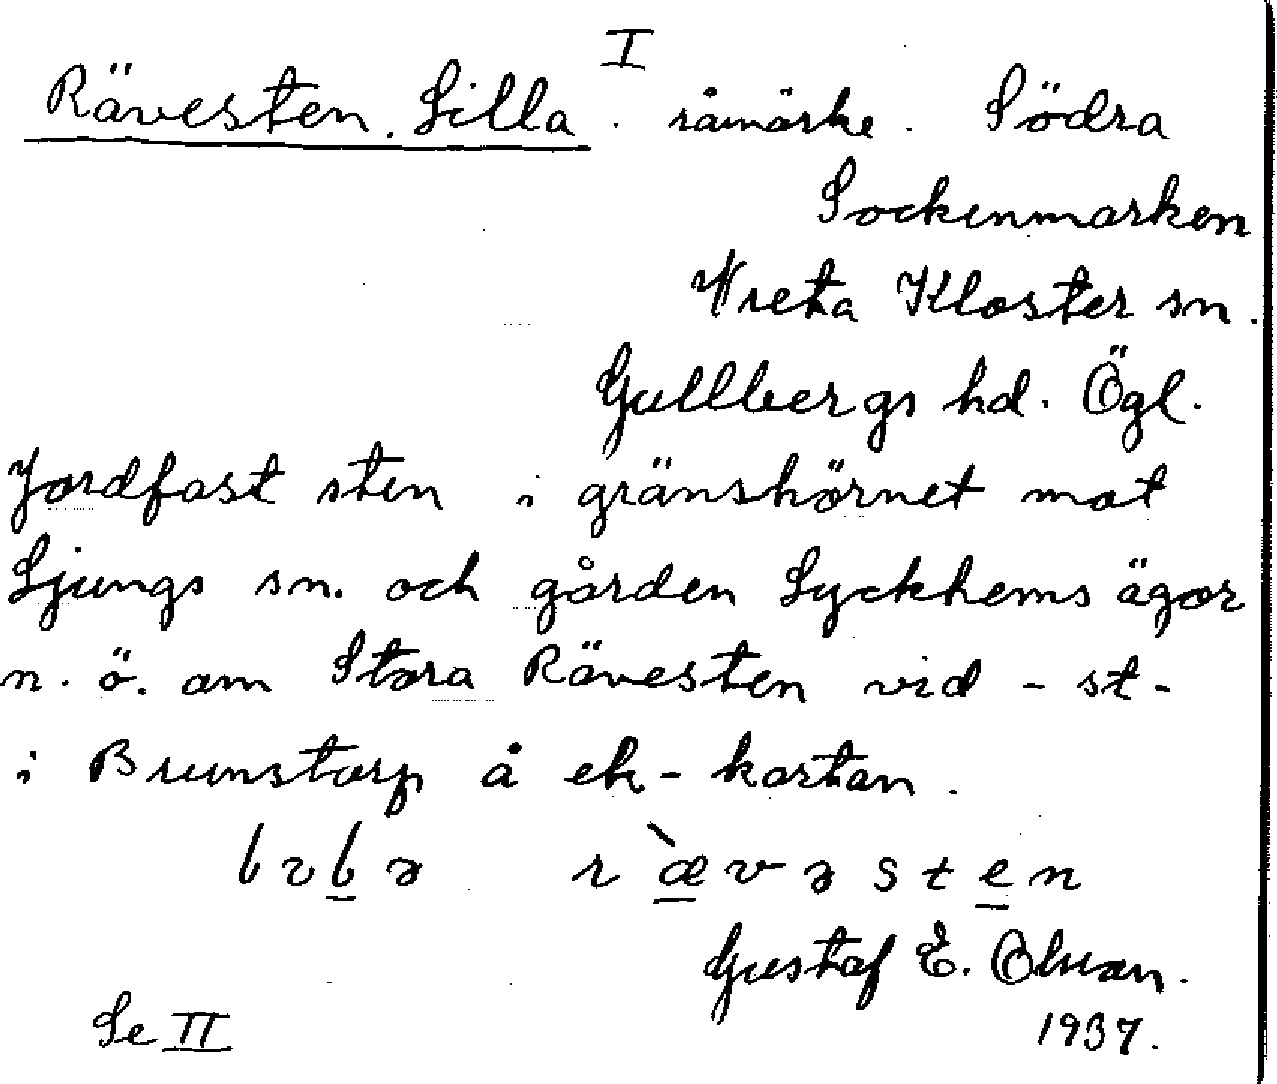 I
Rävesten, Lilla. råmärke. Södra
Sockenmarken
Vreta Kloster sn.
Gullbergs hd. Ögl.
Jordfast sten i gränshörnet mot
Ljungs sn. och gården Lyckhems ägor
n. ö. om Stora Rävesten vid - st -
i Brunstorp å ek-kartan.
rævəsten
Gustaf E. Olsson.
Se II
1937.